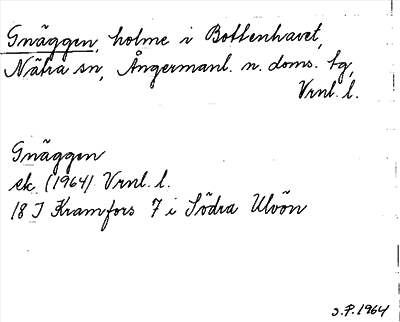 Gnäggen, holme i Bottenhavet,
Nätra sn, Ångermanl. n. doms. tg,
Vrnl. l.
Gnäggen
ek. (1964) Vrnl. l.
18 J Kramfors 7 i Södra Ulvön
J.P. 1964